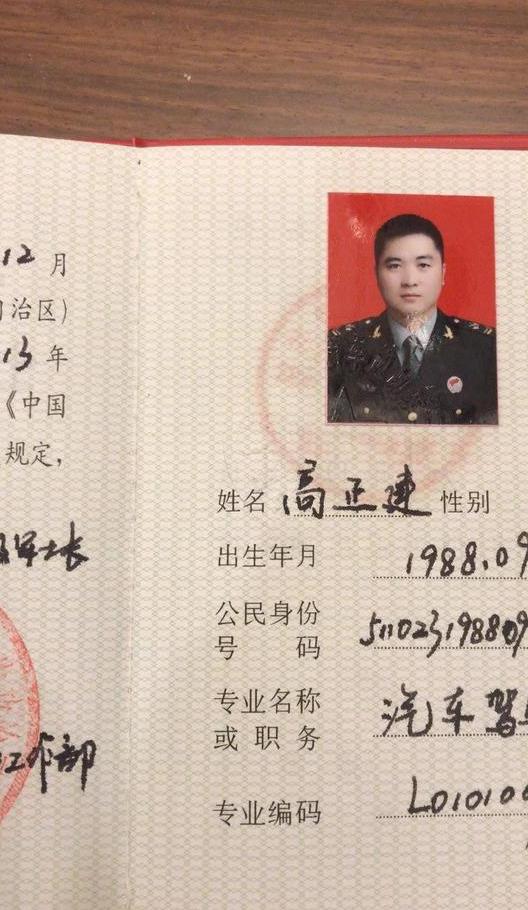 12月
治区)
13年
《中国
规定,
军士长
工作部
姓名 高正建 性别
出生年月 1988.09
公民身份
号码 511023198809
专业名称
或职务 汽车驾
专业编码 L01010